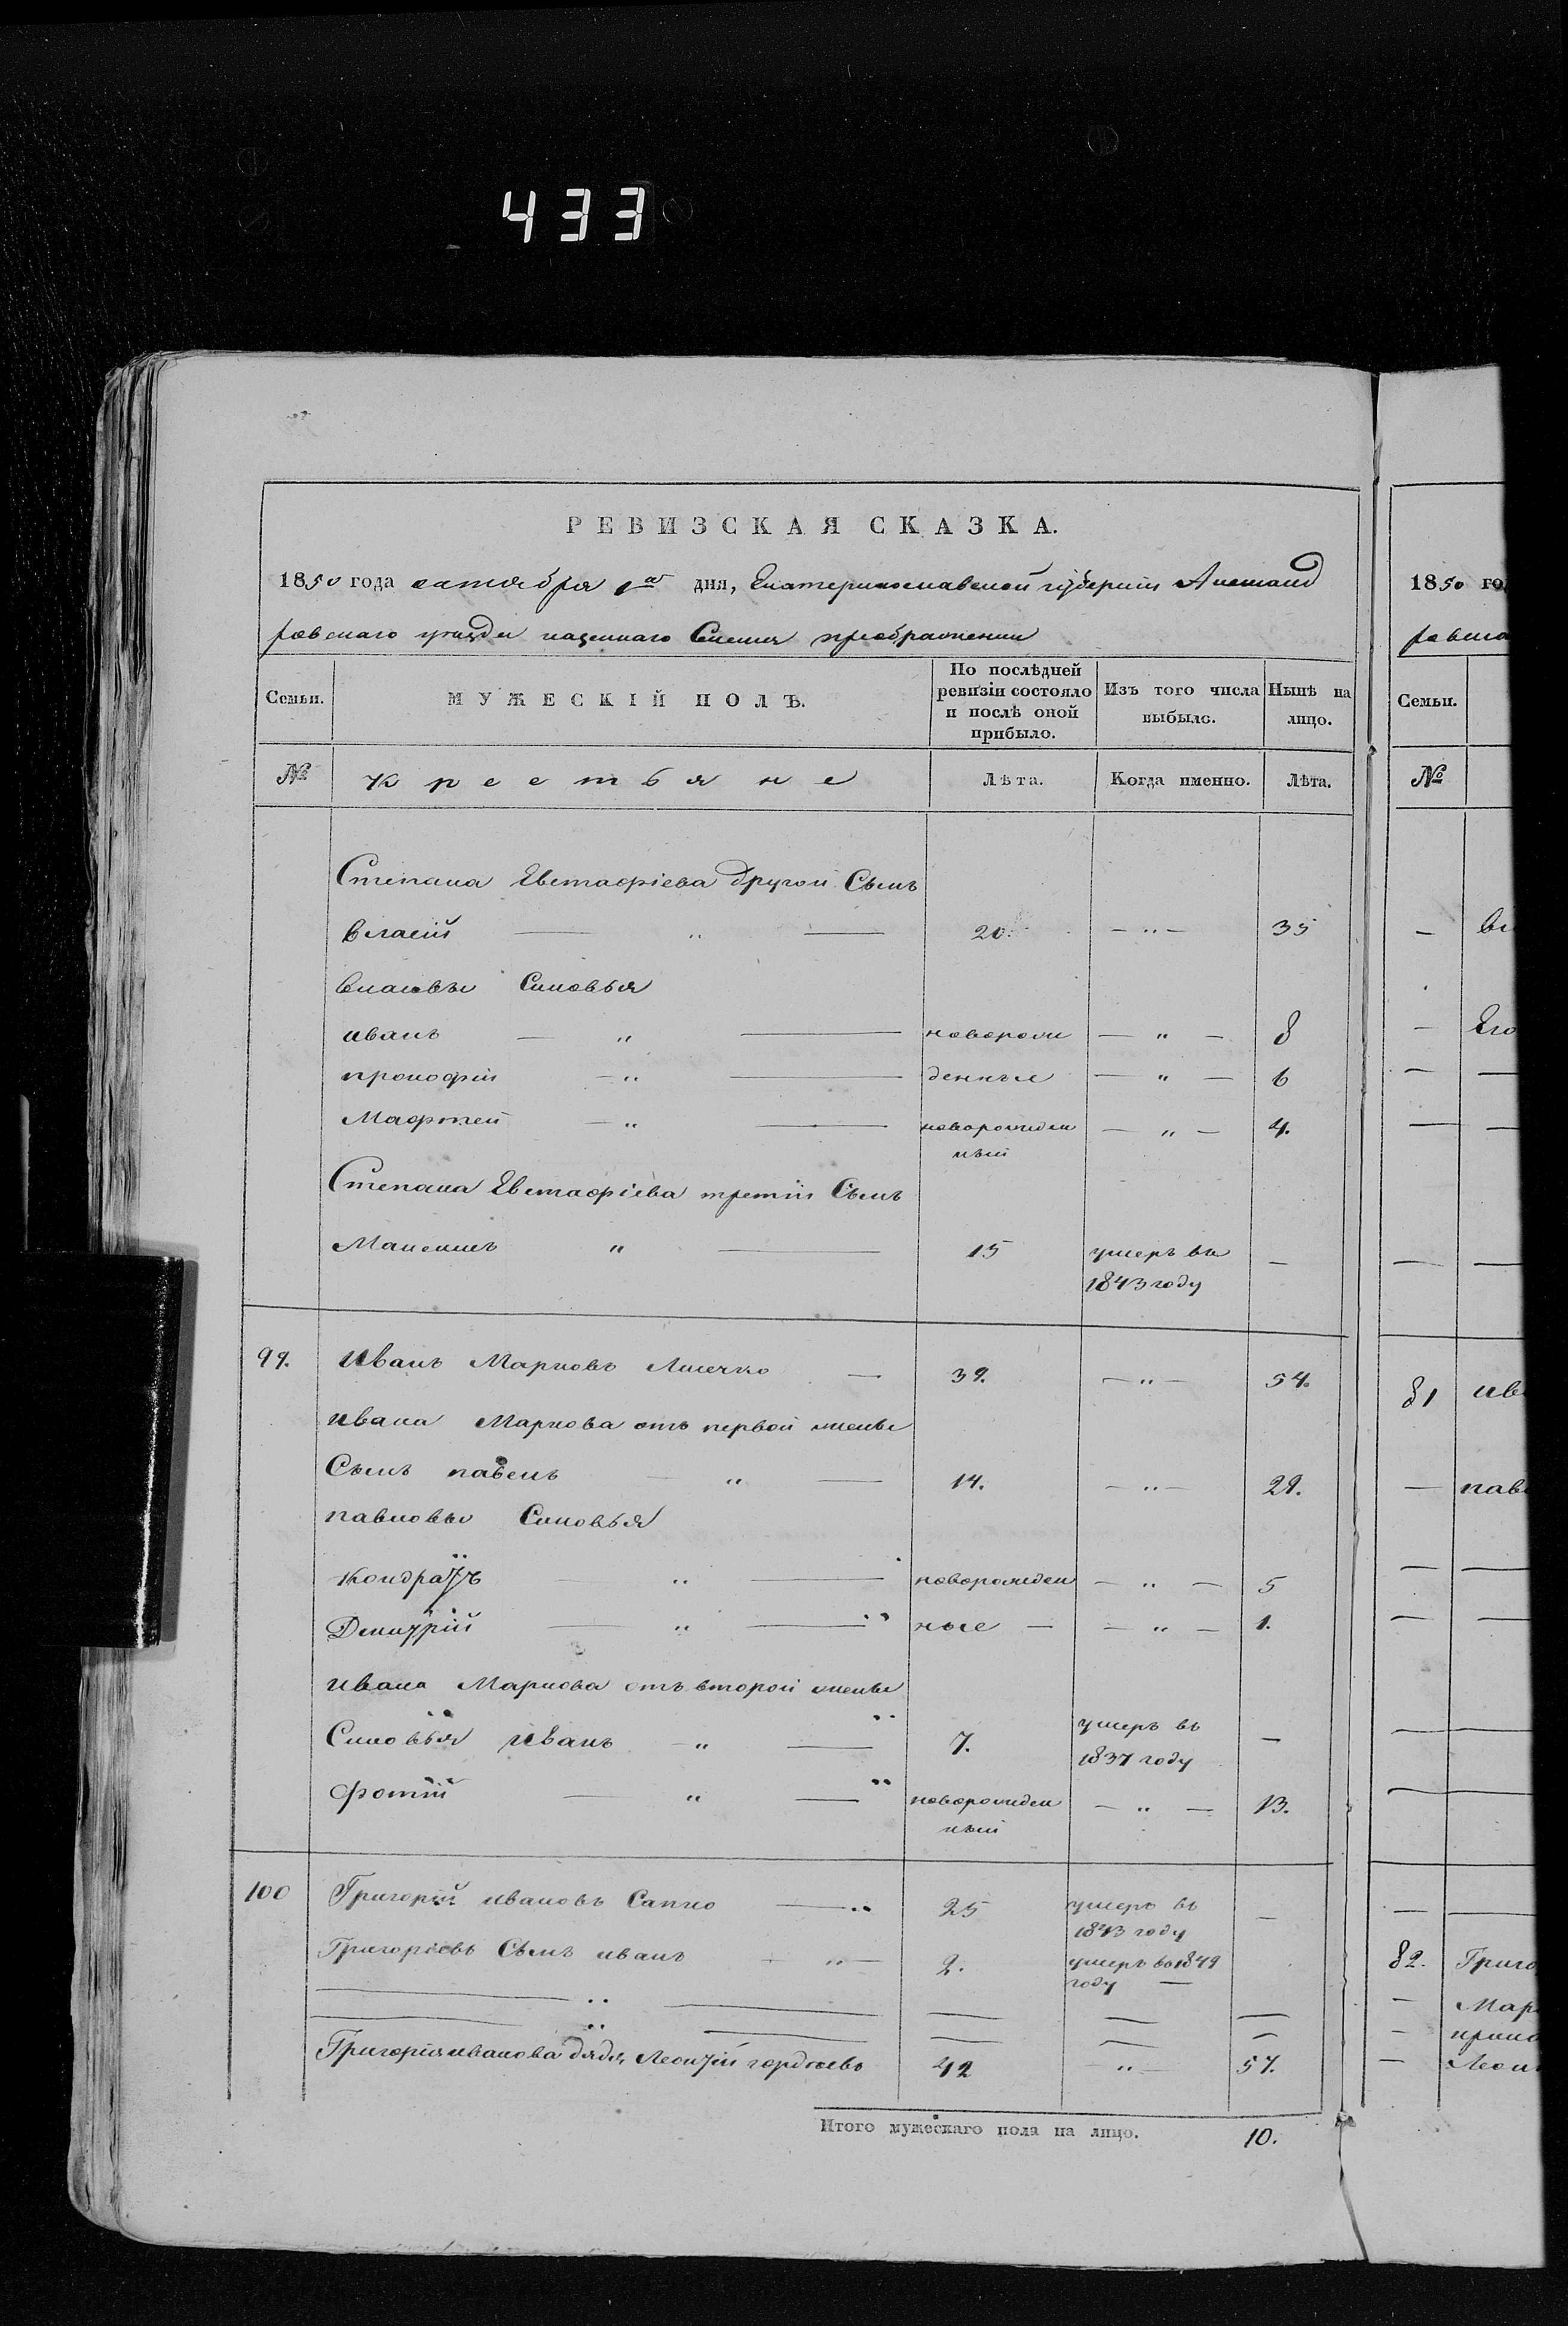 433
РЕВИЗСКАЯ СКАЗКА.
1850 года октября 1го дня, Екатеринославской губерніи Александ
ровскаго уѣзда казеннаго Селенія преображенки
Семьи. МУЖЕСКІЙ ПОЛЪ. По послѣдней ревизіи состояло и послѣ оной прибыло. Изъ того числа выбыло. Нынѣ на лицо.
№ Крестьяне Лѣта. Когда именно. Лѣта.
Степана Евстафіева другой Сынъ
Власій — " — 20. — " — 35
Власовы Сыновья
иванъ — " — новорож — " — 8
прокофій — " — денные — " — 6
Мафтей — " — новорожден — " — 4.
ный
Степана Евстафіева третій Сынъ
Максимъ " — 15 умеръ въ —
1843 году
99. Иванъ Марковъ Лисечко — 39. — " — 54.
Ивана Маркова отъ первой жены
Сынъ павелъ — " — 14. — " — 29.
павловы Сыновья
Кондратъ — " — новорожден — " — 5
Димитрій — " — ные — — " — 1.
Ивана Маркова отъ второй жены
Сыновья Иванъ — " — 7. умеръ въ —
1837 году
Фотій — " — новорожден — " — 13.
ный
100 Григорій ивановъ Сапко — " 25 умеръ въ —
1843 году
Григоріевъ Сынъ иванъ — " — 2. умеръ въ 1849
году —
— " — — — —
— " — — — —
Григорія иванова дядя Леонтій гордѣевъ 42 — " — 57.
Итого мужескаго пола на лицо. 10.
1850 го
ровска
Семьи.
№
— Вл
— Его
81 ив
— пав
82. Григо
— Мар
— Леон